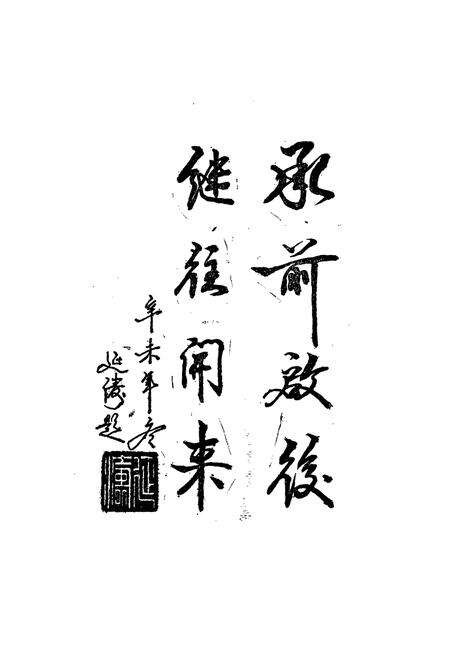 承前啟後
继往開来
辛未年冬
延涛題